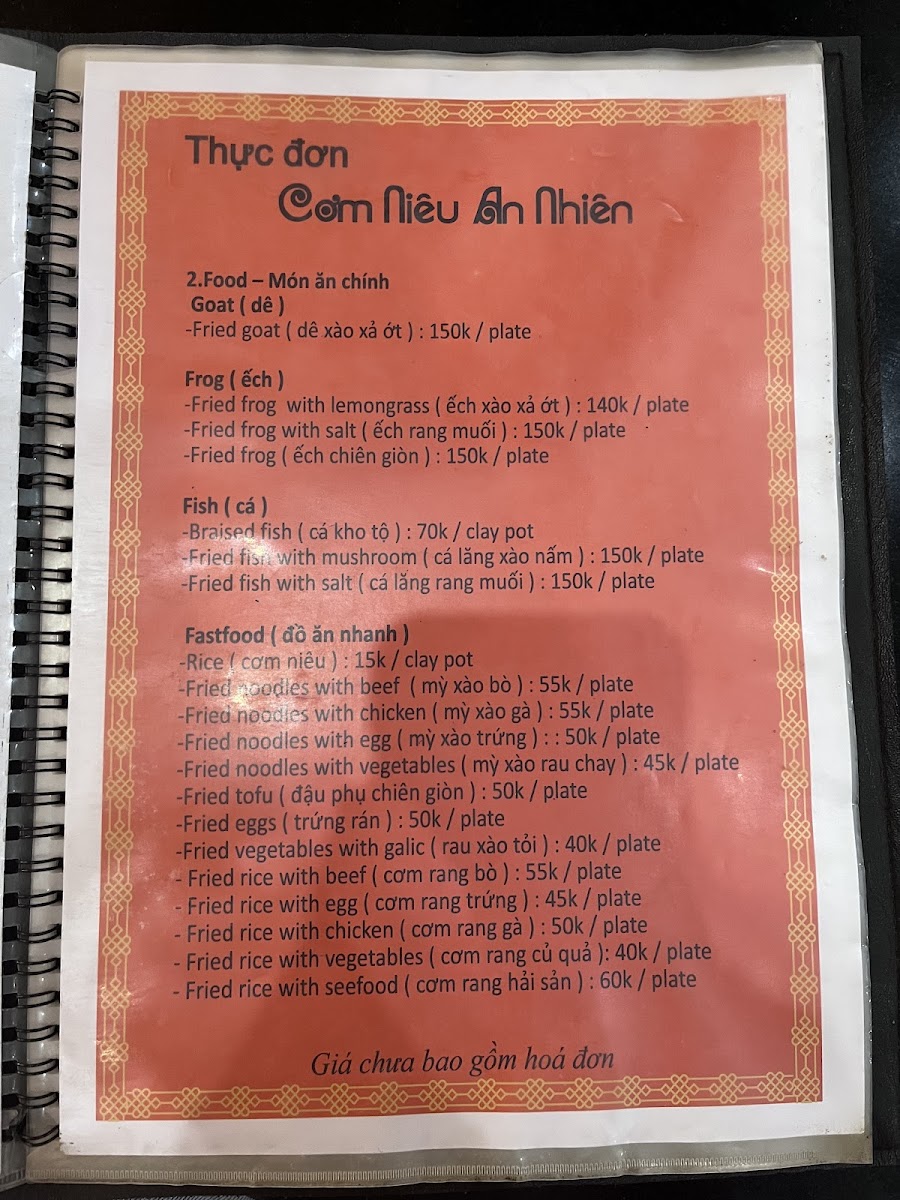 Thực đơn
Cơm Niêu An Nhiên
2.Food – Món ăn chính
Goat ( dê )
-Fried goat ( dê xào xả ớt ) : 150k / plate
Frog ( ếch )
-Fried frog with lemongrass ( ếch xào xả ớt ) : 140k / plate
-Fried frog with salt ( ếch rang muối ) : 150k / plate
-Fried frog ( ếch chiên giòn ) : 150k / plate
Fish ( cá )
-Braised fish ( cá kho tộ ) : 70k / clay pot
-Fried fish with mushroom ( cá lăng xào nấm ) : 150k / plate
-Fried fish with salt ( cá lăng rang muối ) : 150k / plate
Fastfood ( đồ ăn nhanh )
-Rice ( cơm niêu ) : 15k / clay pot
-Fried noodles with beef ( mỳ xào bò ) : 55k / plate
-Fried noodles with chicken ( mỳ xào gà ) : 55k / plate
-Fried noodles with egg ( mỳ xào trứng ) : : 50k / plate
-Fried noodles with vegetables ( mỳ xào rau chay ) : 45k / plate
-Fried tofu ( đậu phụ chiên giòn ) : 50k / plate
-Fried eggs ( trứng rán ) : 50k / plate
-Fried vegetables with galic ( rau xào tỏi ) : 40k / plate
- Fried rice with beef ( cơm rang bò ) : 55k / plate
- Fried rice with egg ( cơm rang trứng ) : 45k / plate
- Fried rice with chicken ( cơm rang gà ) : 50k / plate
- Fried rice with vegetables ( cơm rang củ quả ): 40k / plate
- Fried rice with seefood ( cơm rang hải sản ) : 60k / plate
Giá chưa bao gồm hoá đơn